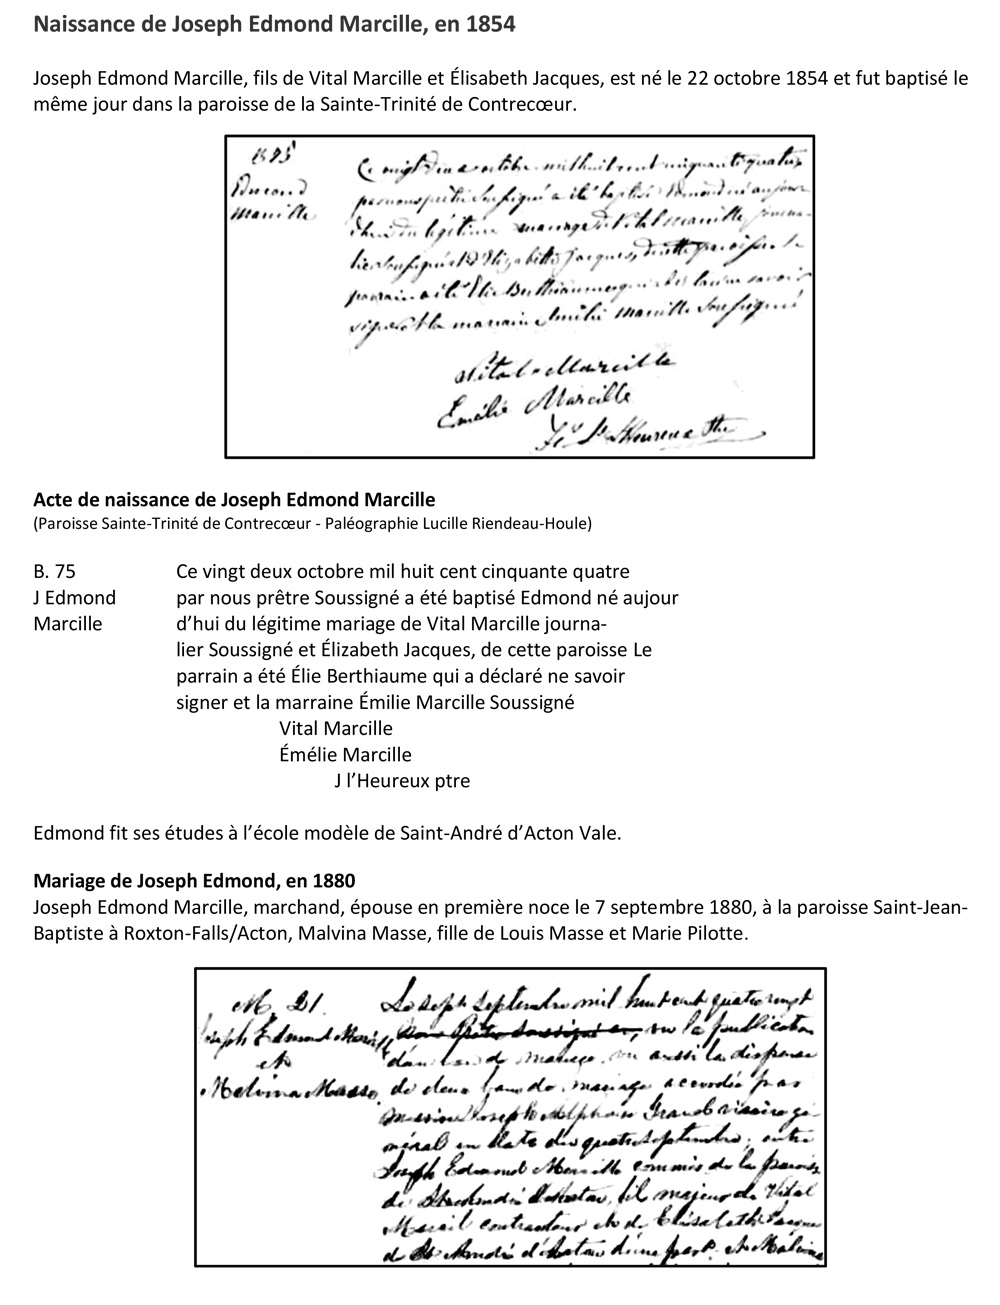 Naissance de Joseph Edmond Marcille, en 1854
Joseph Edmond Marcille, fils de Vital Marcille et Élisabeth Jacques, est né le 22 octobre 1854 et fut baptisé le
même jour dans la paroisse de la Sainte-Trinité de Contrecœur.
Edmond
Marcille
Ce vingt deux octobre mil huit cent cinquante quatre
par nous prêtre Soussigné a été baptisé Edmond né aujour
d'hui du légitime mariage de Vital Marcille journa-
lier Soussigné et Elizabeth Jacques, de cette paroisse Le
parrain a été Elie Berthiaume qui a déclaré ne savoir
signer et la marraine Emilie Marcille Soussigné
Vital Marcille
Emélie Marcille
L'Heureux Ptre
Acte de naissance de Joseph Edmond Marcille
(Paroisse Sainte-Trinité de Contrecœur - Paléographie Lucille Riendeau-Houle)
B. 75 Ce vingt deux octobre mil huit cent cinquante quatre
J Edmond par nous prêtre Soussigné a été baptisé Edmond né aujour
Marcille d’hui du légitime mariage de Vital Marcille journa-
lier Soussigné et Élizabeth Jacques, de cette paroisse Le
parrain a été Élie Berthiaume qui a déclaré ne savoir
signer et la marraine Émilie Marcille Soussigné
Vital Marcille
Émélie Marcille
J l’Heureux ptre
Edmond fit ses études à l’école modèle de Saint-André d’Acton Vale.
Mariage de Joseph Edmond, en 1880
Joseph Edmond Marcille, marchand, épouse en première noce le 7 septembre 1880, à la paroisse Saint-Jean-
Baptiste à Roxton-Falls/Acton, Malvina Masse, fille de Louis Masse et Marie Pilotte.
M. 21.
Joseph Edmond
et
Melvina Masse
Le sept Septembre mil huit cent quatre vingt
vu la publication
d'un ban de mariage, vu aussi la dispense
de deux bans de mariage accordée par
Messire Joseph Alphonse Gravel vicaire gé-
néral en date du quatre septembre, entre
Joseph Edmond Marcille commis de la paroisse
de St André d'Acton, fils majeur de Vital
Marcil contracteur et de Elisabeth Jacques
de St André d'Acton d'une part, et Malvina